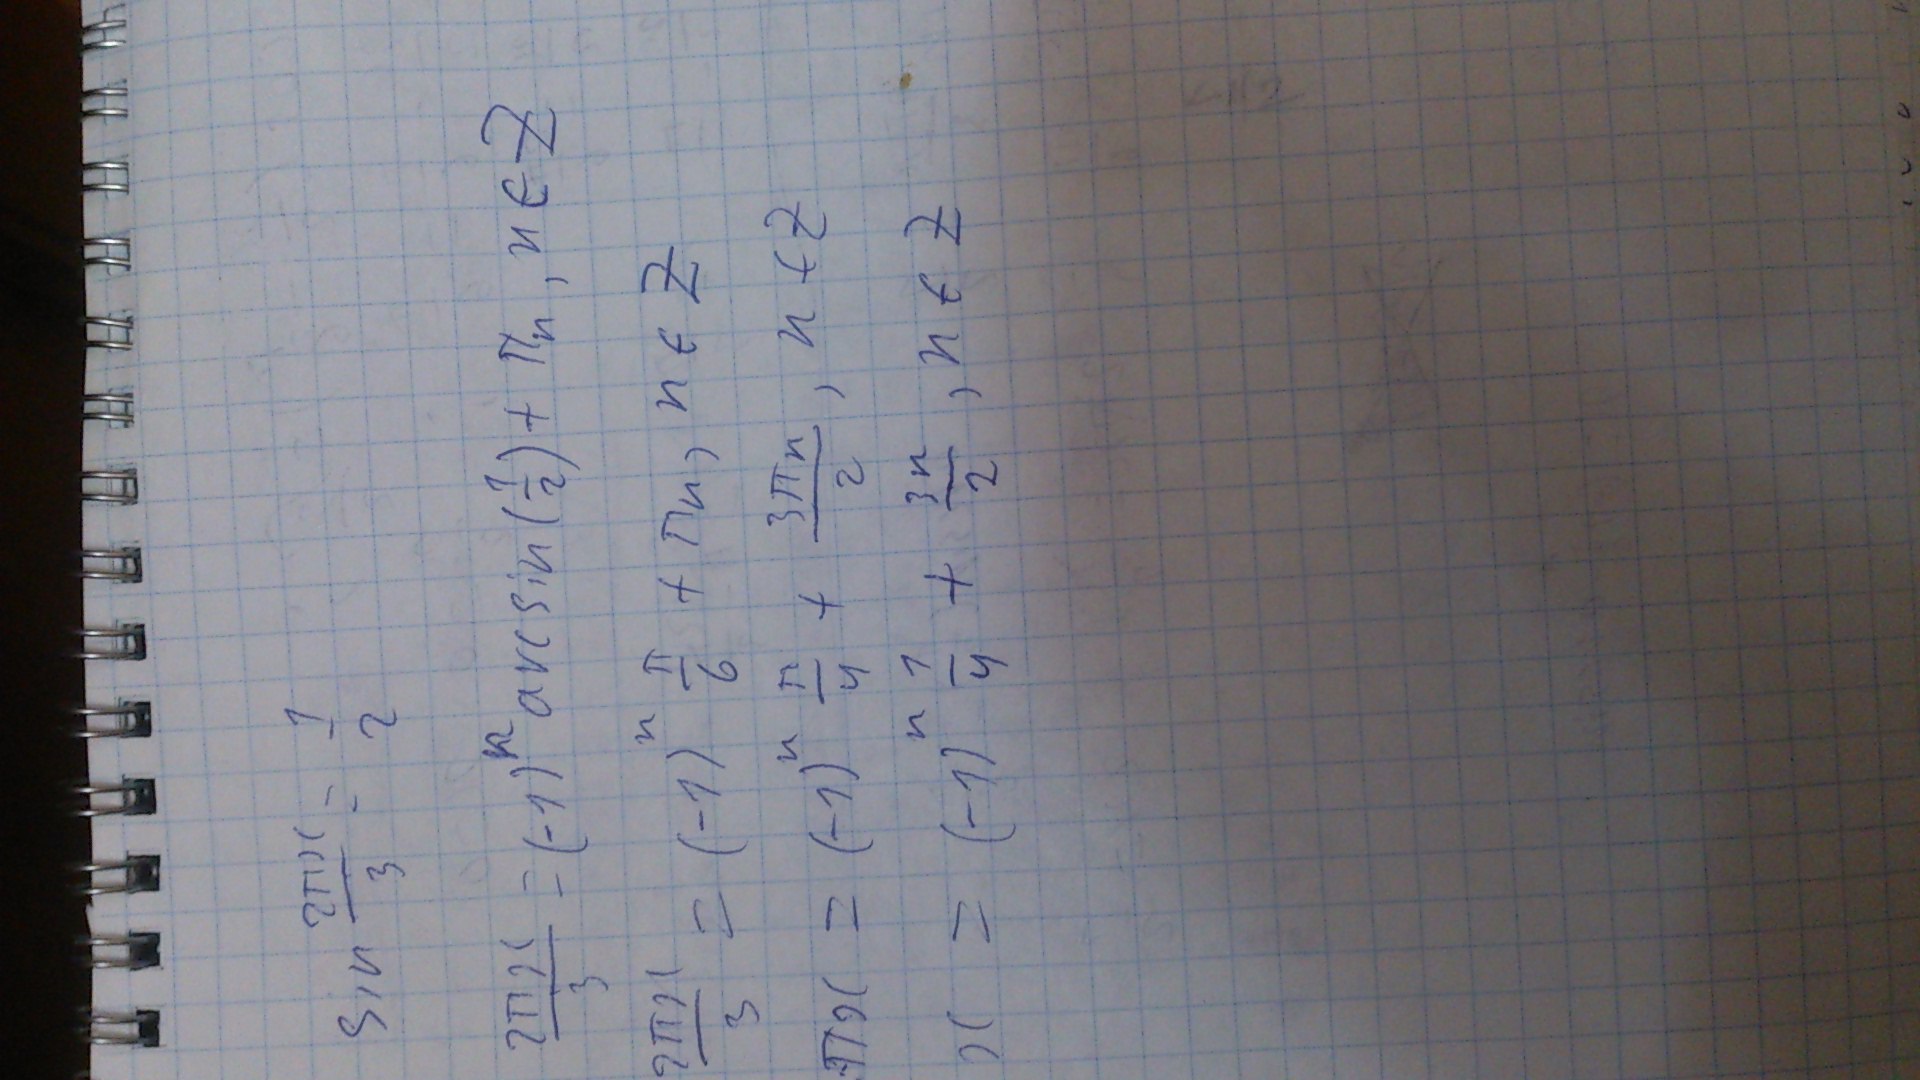 sin 2πx/3 = 1/2
2πx/3 = (-1)^n arcsin(1/2) + πn, n ∈ Z
2πx/3 = (-1)^n π/6 + πn, n ∈ Z
πx = (-1)^n π/4 + 3πn/2, n ∈ Z
x = (-1)^n 1/4 + 3n/2, n ∈ Z